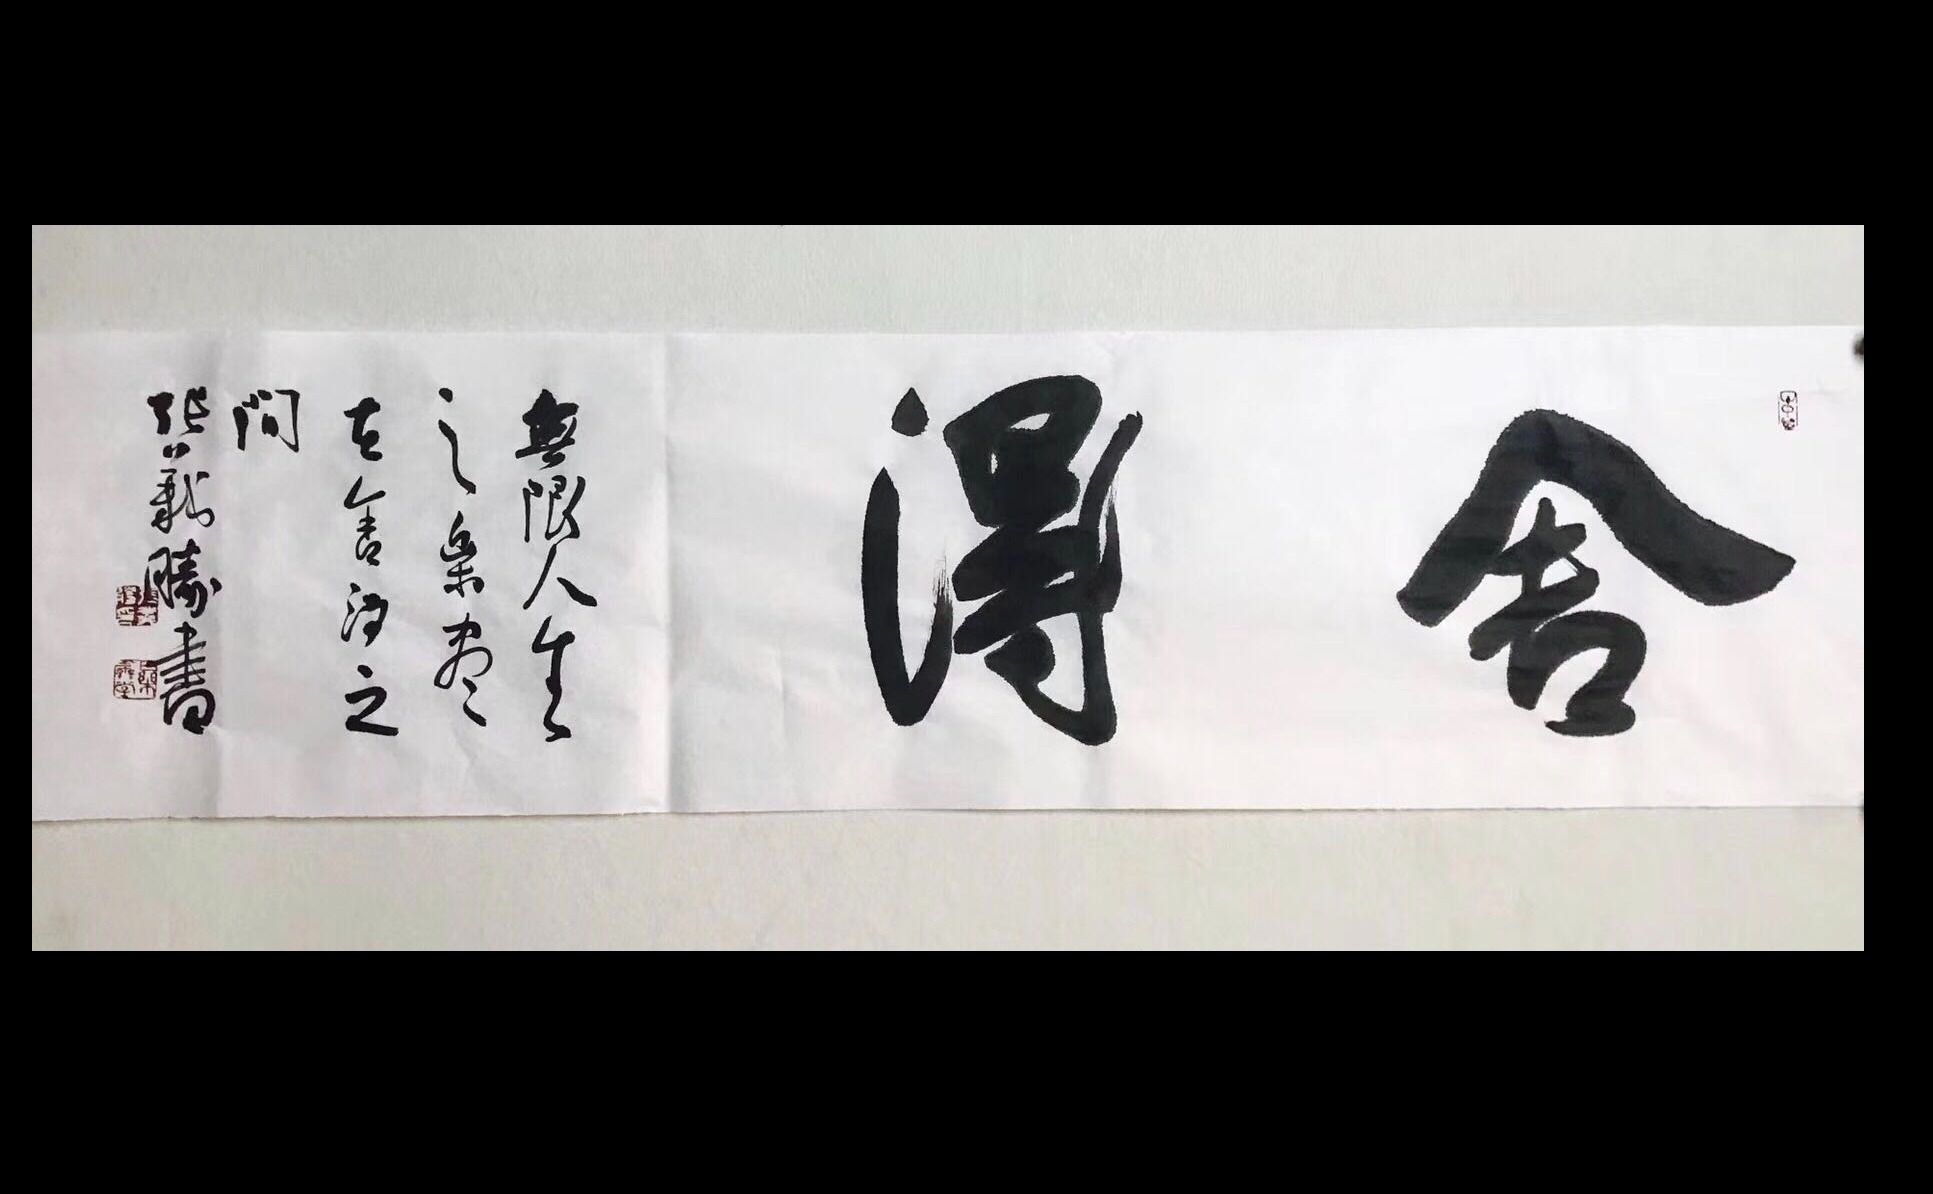 舍得
無限人生
之樂盡
在舍得之
間
張義勝書